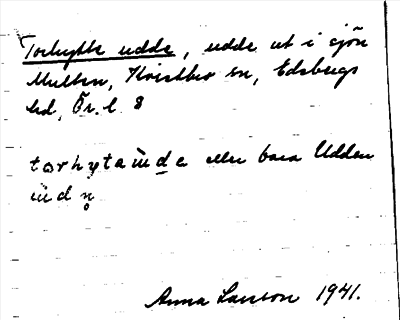 Torhytte udde, udde ut i sjön
Multen, Kvistbro sn, Edsbergs
hd, Ör. l. 8
tɷrhytaɯ̀dɛ eller bara Udden
ɯ́dn̥
Anna Larsson 1941.